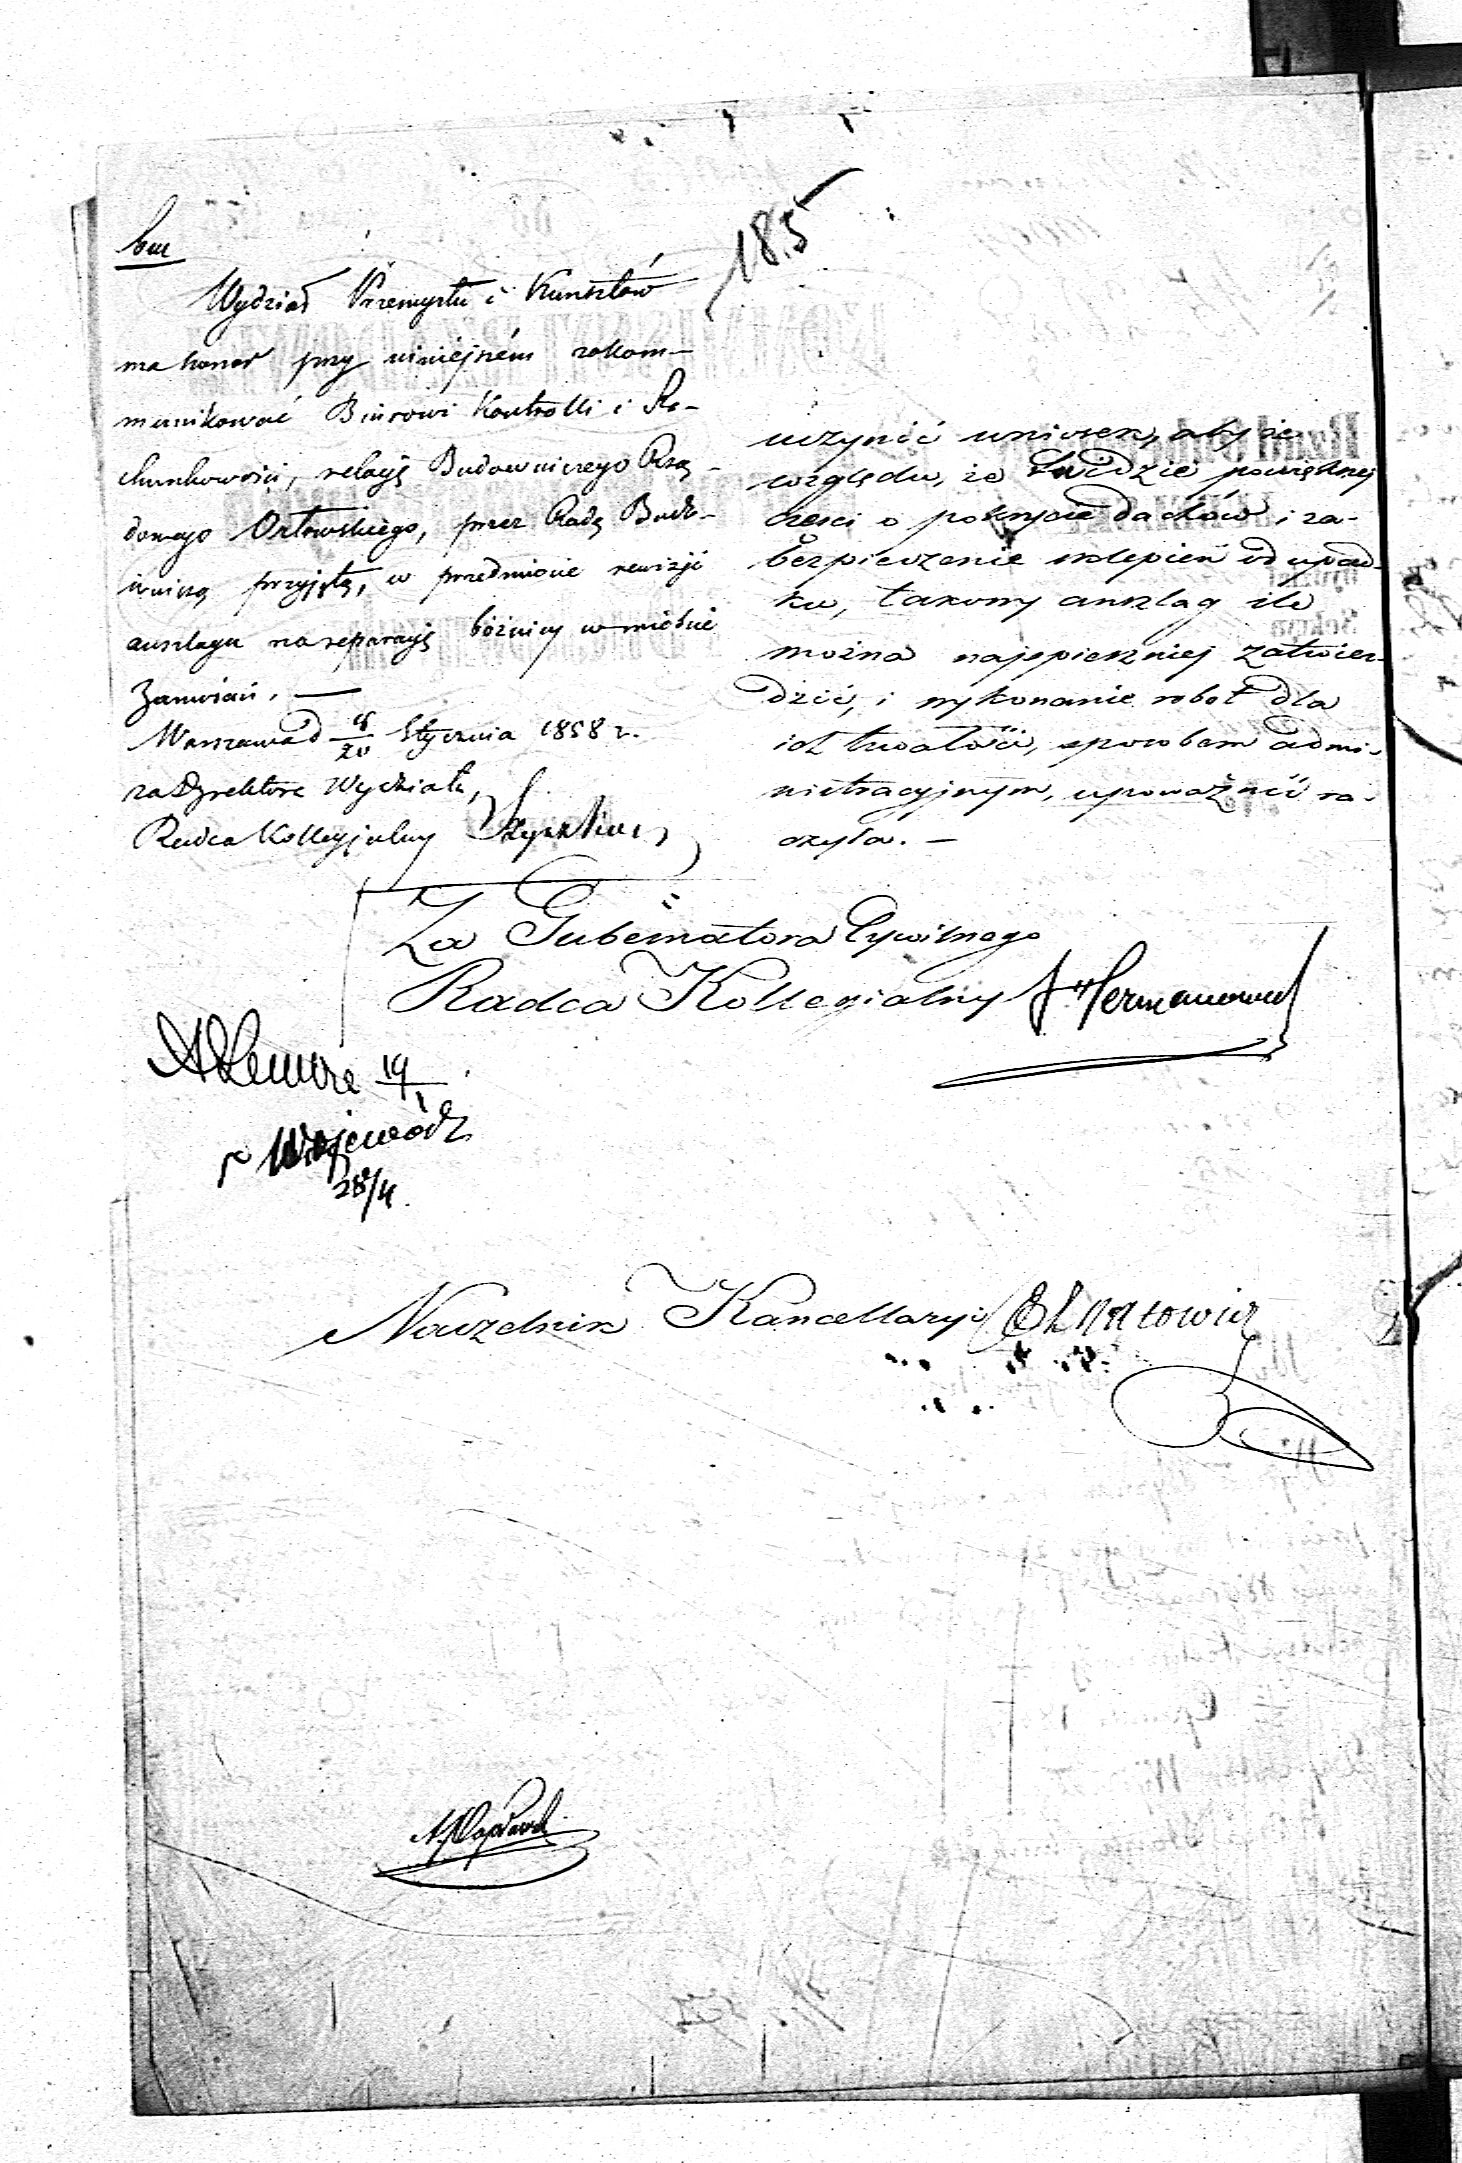 185
Wydział Przemysłu i Kunsztów
ma honor przy niniejszém zakom-
munikować Biurowi Kontrolli i Ra-
chunkowości, relacyę Budowniczego Rzą-
dowego Orłowskiego, przez Radę Budo-
wniczą przyjętą, w przedmiocie rewizji
anszlagu na reparacyę bóżnicy w mieście
Zawiście. —
Warszawa d 8/20 Stycznia 1858 r.
za Dyrektora Wydziału,
Radca Kollegjalny
uczynić wniosek, aby ze
względu, że idzie po większej
części o pokrycie dachów i za-
bezpieczenie sklepień od upad-
ku, takowy anszlag ile
można najspieszniej zatwier-
dzić, i wykonanie robot dla
ich trwałości, sposobem admi-
nistracyjnym, upoważnić ra-
czyła. —
Za Gubernatora Cywilnego
Radca Kollegialny Hermanowicz
19/1
Wojewódz
28/4
Naczelnik Kancellaryi